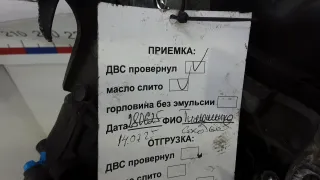 ПРИЕМКА:
ДВС провернул
масло слито
горловина без эмульсии
Дата 280625 ФИО Тимошенко
ОТГРУЗКА:
ДВС провернул
сло слито